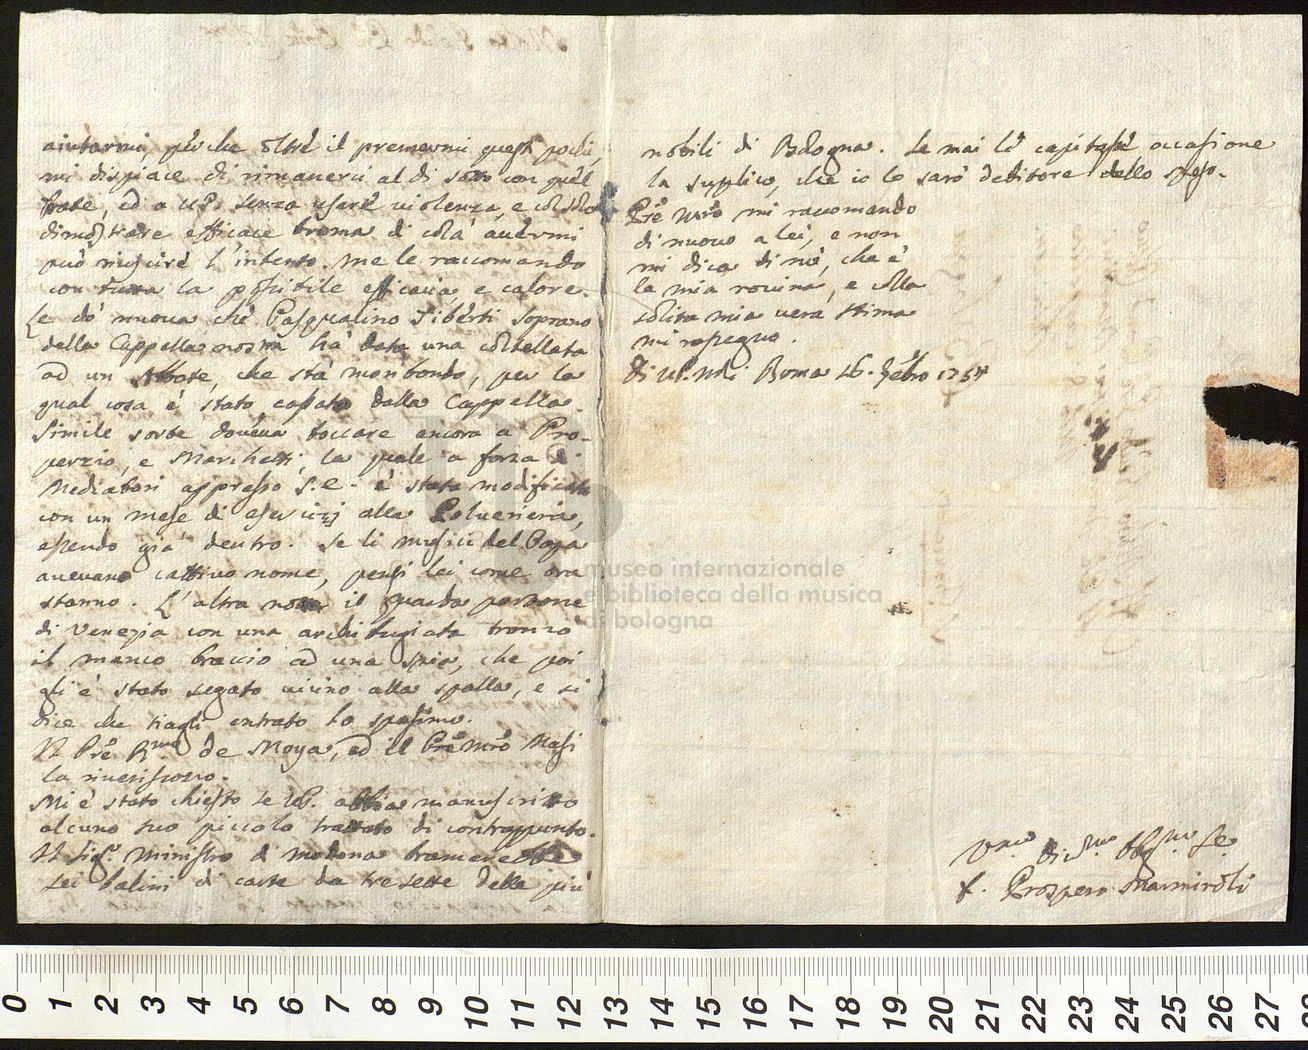 aiutarmi, perche oltre il premermi questi pochi,
mi dispiace di rimanerci al di sotto con quel
frate, ed a VP. senza usare violenza, e col solo
dimostrare efficace brama di colà avermi
può riuscire l'intento. Me le raccomando
con tutta la possibile efficacia, e calore.
Le do nuova che Pasqualino Tiberti soprano
della Cappella nostra ha data una coltellata
ad un Abate, che sta moribondo, per la
qual cosa è stato cassato dalla Cappella.
Simile sorte doveva toccare ancora a Pro-
perzio, e Marchetti, la quale a forza di
Mediatori appresso S.E. è stata modificata
con un mese di esercizj alla Polveriera,
essendo già dentro. Se li musici del Papa
avevano cattivo nome, pensi lei come ora
stanno. L'altra notte il guarda portone
di Venezia con una archibugiata troncò
il manco braccio ad una spia, che poi
gli è stato segato vicino alla spalla, e si
dice che siagli entrato lo spasimo.
Il Pre Rmo de Moya, ed il Pre Mro Masi
la riveriscono.
Mi è stato chiesto se VP. abbia manuscritto
alcuno suo piccolo trattato di contrappunto.
Il Sigr. Ministro di Modona bramerebbe
sei balini di carte da tresette delle più
nobili di Bologna. Se mai le capitasse occasione
la supplico, che io le sarò debitore dello speso.
Pre Mro mi raccomando
di nuovo a lei, e non
mi dica di nò, che è
la mia rovina, e colla
solita mia vera stima
mi rassegno.
Di VP. MRi Roma 16. 1754
museo internazionale
e biblioteca della musica
di bologna
Vmo Obblmo Se
f. Prospero Marmiroli
0 1 2 3 4 5 6 7 8 9 10 11 12 13 14 15 16 17 18 19 20 21 22 23 24 25 26 27 28